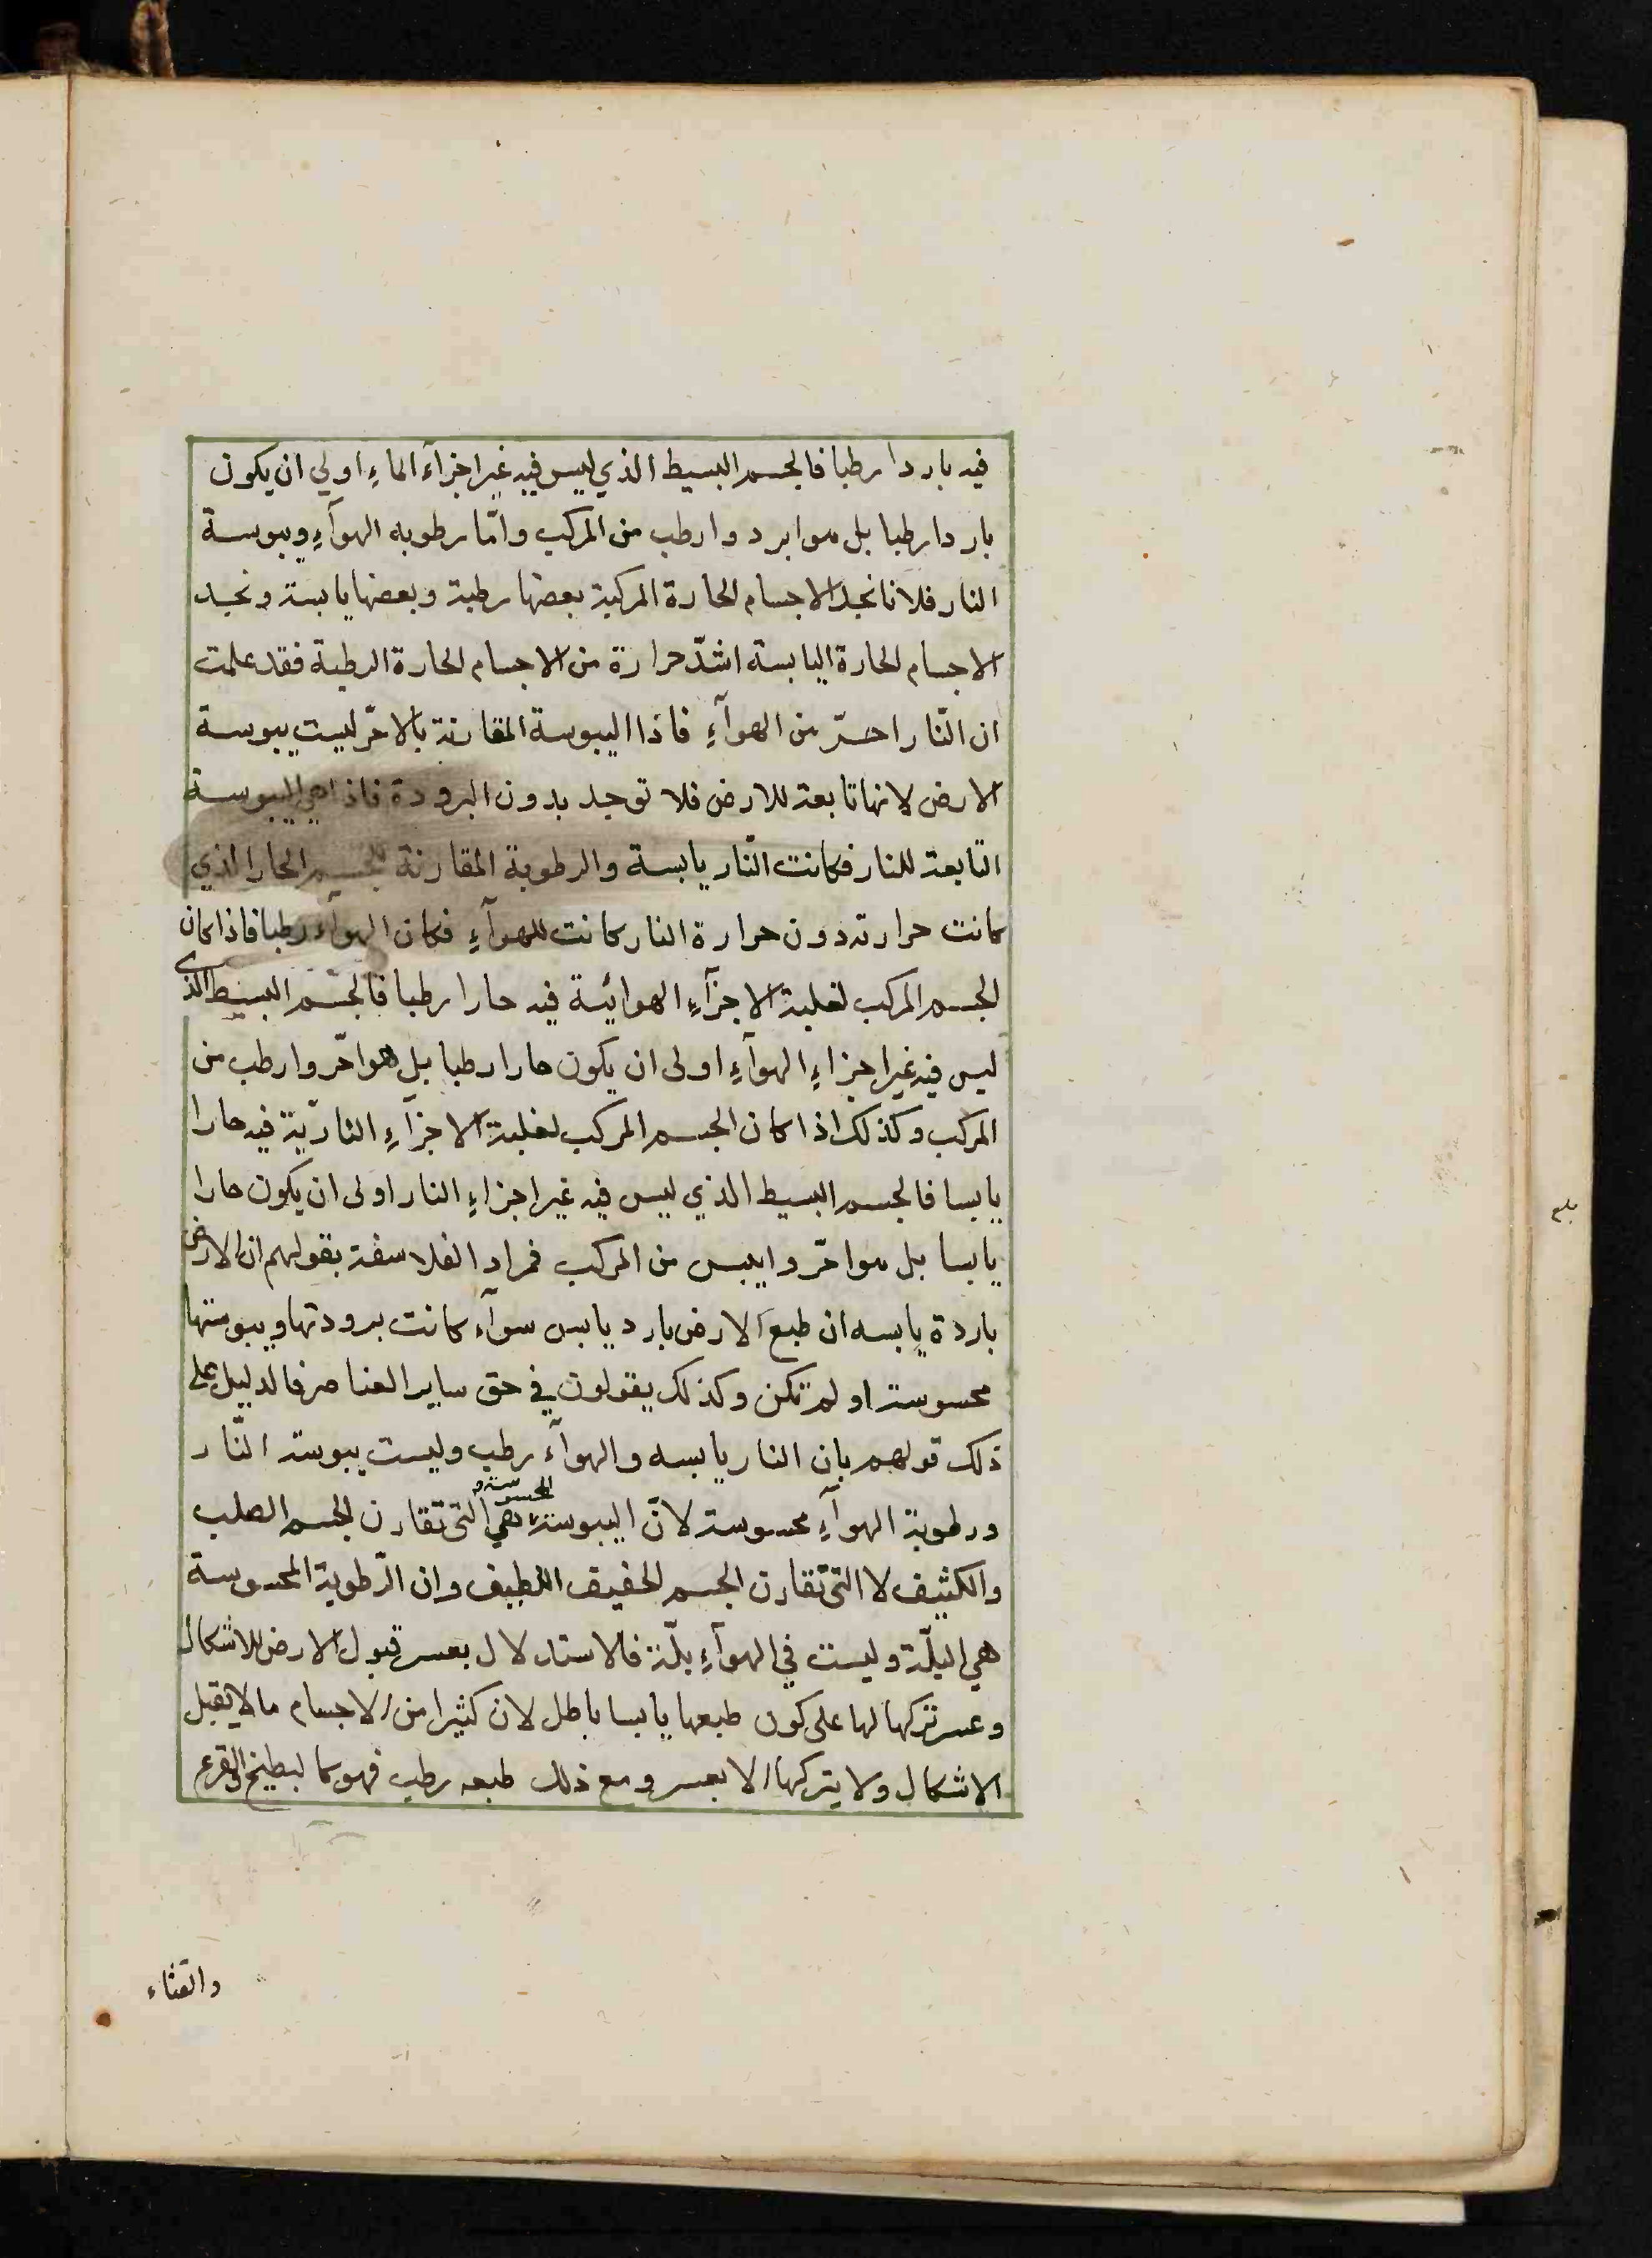 فيه باردا رطبا فالجسم البسيط الذي ليس فيه غير اجزآء الماءِ اولي ان يكون
باردا رطبا بل هو ابرد وارطب من المركب وامّا رطوبه الهوآءِ ويبوسة
النار فلانا نجد الاجسام الحارة المركبة بعضها رطبة وبعضها يابسة ونجد
الاجسام الحارة اليابسة اشدّ حرارة من الاجسام الحارة الرطبة فقد علمت
ان النّار احرّ من الهوآءِ فاذا اليبوسة المقارنة بالاحرّ ليست يبوسة
الارض لانها تابعة للارض فلا توجد بدون البرودة فاذا هي اليبوسة
التابعة للنار فكانت النّار يابسة والرطوبة المقارنة للجسم الحار الذي
كانت حرارته دون حرارة النار كانت للهوآءِ فكان الهوآء رطبا فاذا كان
الجسم المركب لغلبة الاجزآءِ الهوائية فيه حارا رطبا فالجسم البسيط الذى
ليس فيه غير اجزاءِ الهوآءِ اولى ان يكون حارا رطبا بل هو احّر وارطب من
المركب وكذلك اذا كان الجسم المركب لغلبة الاجزآءِ الناريّة فيه حارا
يابسا فالجسم البسيط الذي ليس فيه غير اجزاءِ النار اولى ان يكون حارا
يابسا بل هو احّر وايبس من المركب فمراد الفلاسفة بقولهم ان الارض
باردة يابسه ان طبع الارض بارد يابس سوآء كانت برودتها ويبوستها
محسوسة او لم تكن وكذلك يقولون في حق ساير العناصر فالدليل على
ذلك قولهم بان النار يابسه والهوآء رطب وليست يبوسة النّار
ورطوبة الهوآءِ محسوسة لانّ اليبوسة المحسوسة وهي التى تقارن الجسم الصلب
والكثيف لا التى تقارن الجسم الخفيف اللطيف وان الرّطوبة المحسوسة
هي البلّة وليست في الهوآءِ بلّة فالاستدلال بعسر قبول الارض للاشكال
وعسر تركها لها على كون طبعها يابسا باطل لان كثيرا من الاجسام ما لا يقبل
الاشكال ولا يتركها الا بعسر ومع ذلك طبعه رطب فهو كالبطيخ والقرع
والقثاء